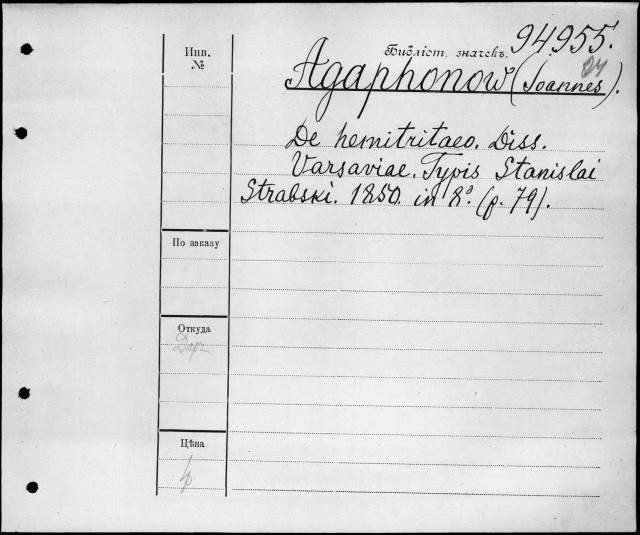 Инв.
№
Библіот. значекъ. 94955.
Agaphonow (Joannes).
De hemitritaeo. Diss.
Varsaviae. Typis Stanislai
Strabski. 1850. in 8º. (p. 79).
По заказу
Откуда
Цѣна